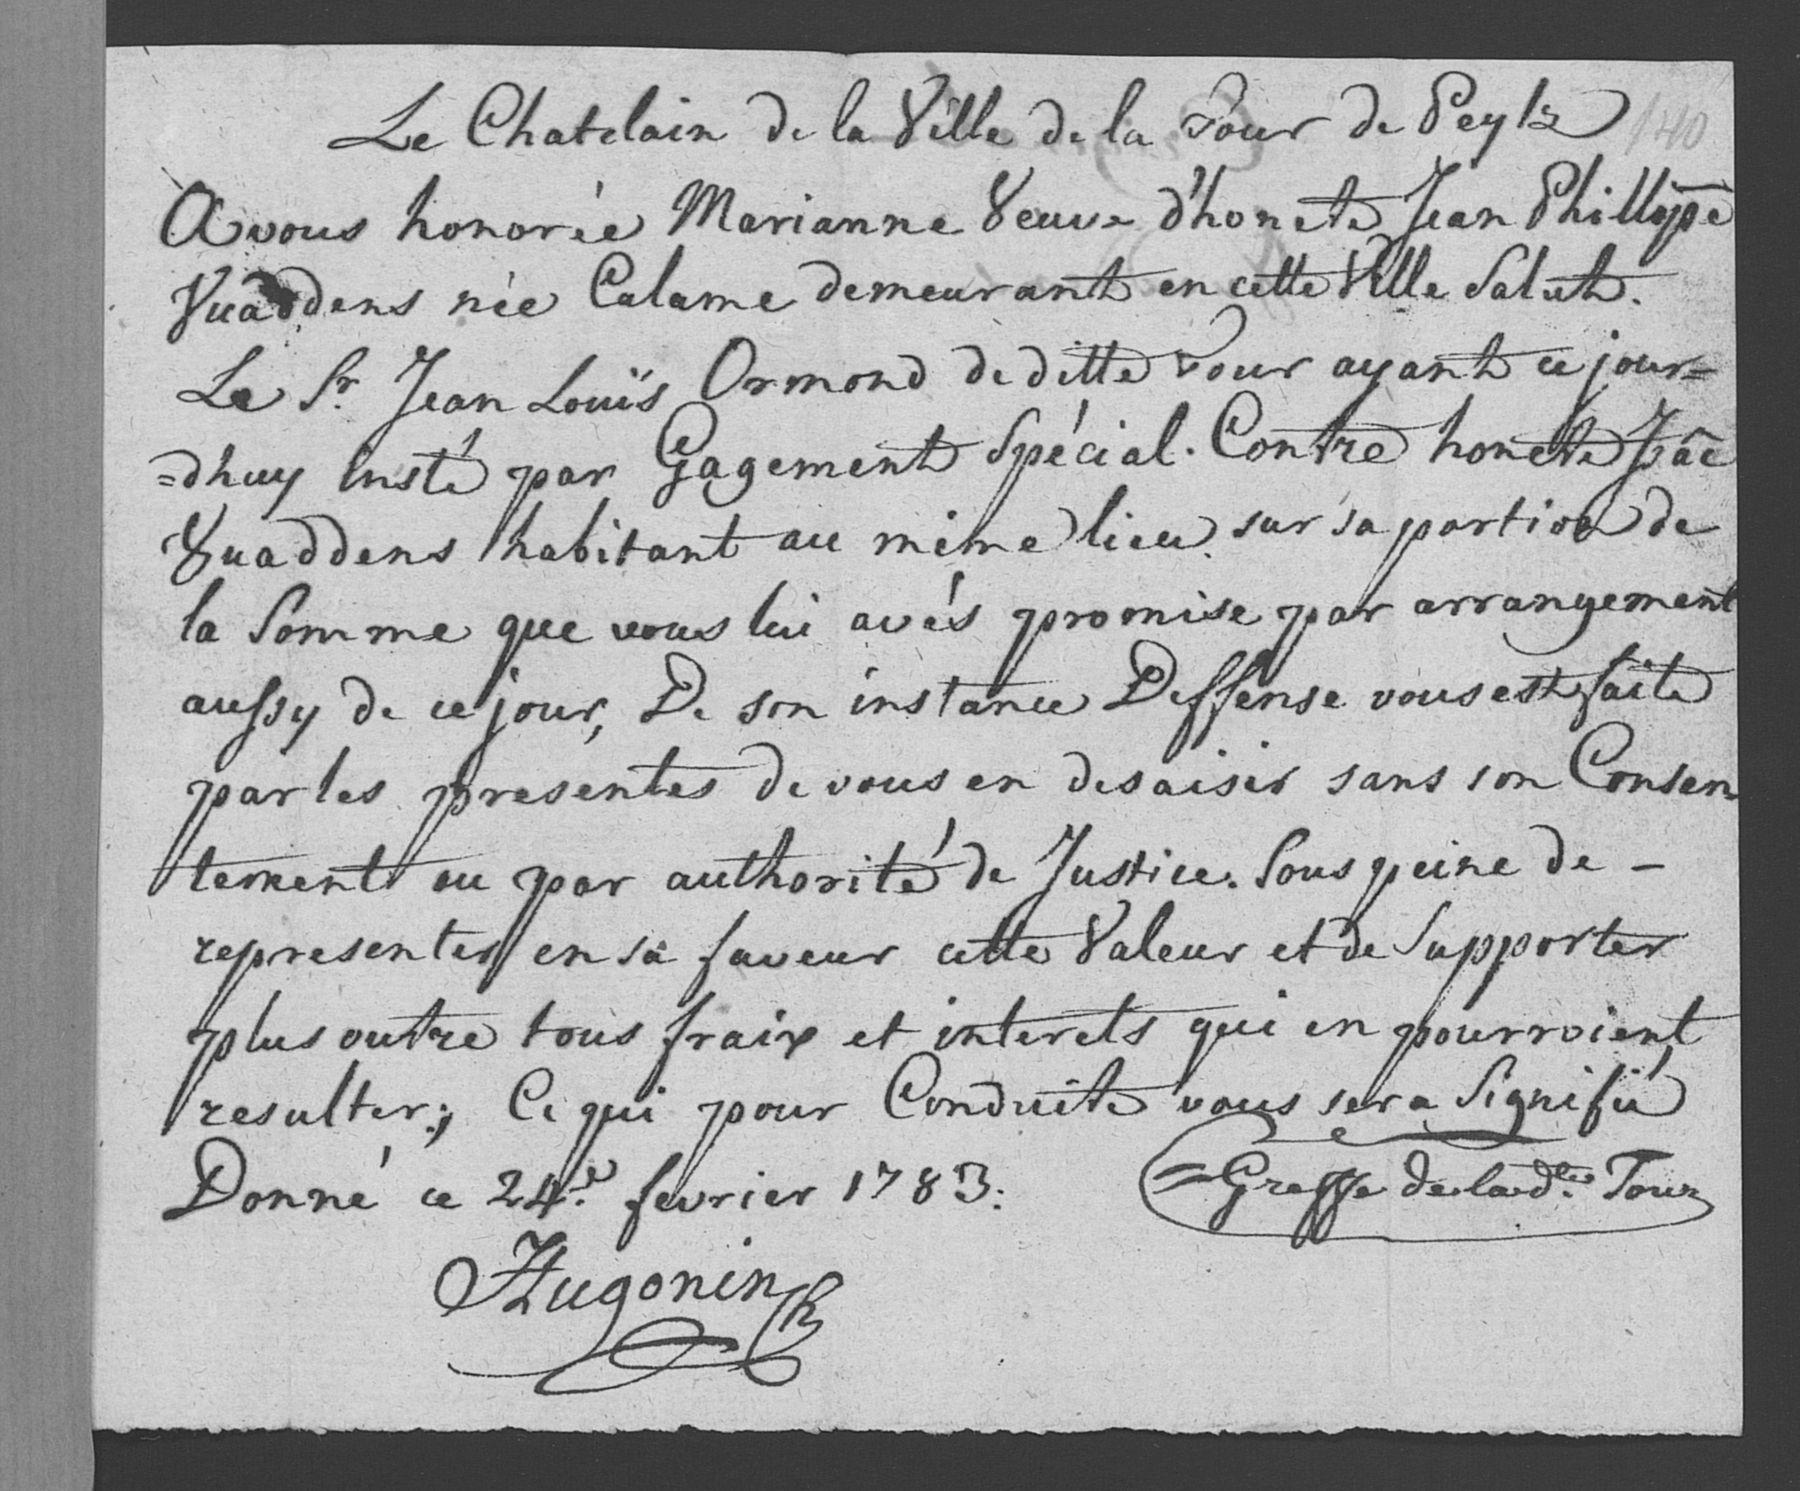 Le Chatelain de la Ville de la Tour de Peylz
140
A vous honorée Marianne Veuve d'honete Jean Phillippe
Vuaddens née Calame demeurant en cette Ville Salut.
Le Sr. Jean Louïs Ormond de ditte Tour ayant ce jour=
=dhuy insté par Gagement Spécial. Contre honete
Vuaddens habitant au même lieu. sur sa portion de
la Somme que vous lui avés promise par arrangement
aussy de ce jour, De son instance Deffense vous est faite
par les presentes de vous en desaisir sans son Consen
tement ou par authorité de Justice. Sous peine de -
representer en sa faveur cette Valeur et de Supporter
plus outre tous fraix et interets qui en pourroient
resulter; Ce qui pour Conduite vous sera Signifié
Donné ce 24e. fevrier 1783.
=Greffe de la de. Tour
Hugonin